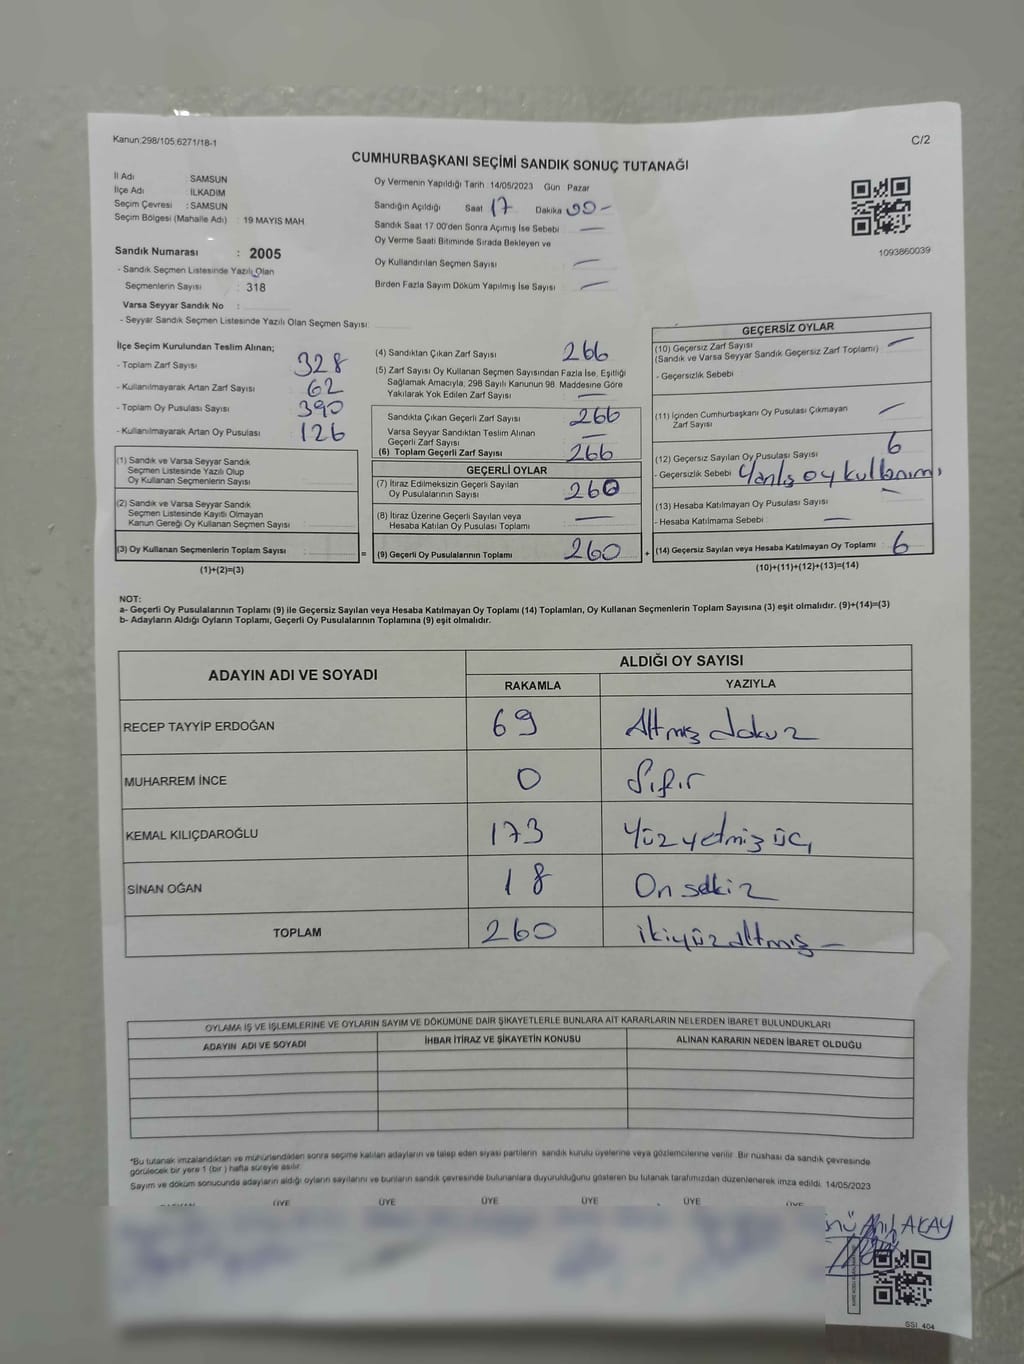 Kanun:298/105,6271/18-1
C/2
CUMHURBAŞKANI SEÇİMİ SANDIK SONUÇ TUTANAĞI
İl Adı SAMSUN
İlçe Adı İLKADIM
Seçim Çevresi : SAMSUN
Seçim Bölgesi (Mahalle Adı) : 19 MAYIS MAH.
Oy Vermenin Yapıldığı Tarih :14/05/2023 Gün Pazar
Sandığın Açıldığı Saat 17 Dakika 00-
Sandık Saat 17:00'den Sonra Açımış İse Sebebi —
Oy Verme Saati Bitiminde Sırada Bekleyen ve
Oy Kullandırılan Seçmen Sayısı —
Birden Fazla Sayım Döküm Yapılmış İse Sayısı —
1093860039
Sandık Numarası : 2005
- Sandık Seçmen Listesinde Yazılı Olan
Seçmenlerin Sayısı : 318
Varsa Seyyar Sandık No :
- Seyyar Sandık Seçmen Listesinde Yazılı Olan Seçmen Sayısı:
İlçe Seçim Kurulundan Teslim Alınan;
- Toplam Zarf Sayısı : 328
- Kullanılmayarak Artan Zarf Sayısı : 62
- Toplam Oy Pusulası Sayısı : 390
- Kullanılmayarak Artan Oy Pusulası : 126
(1) Sandık ve Varsa Seyyar Sandık
Seçmen Listesinde Yazılı Olup
Oy Kullanan Seçmenlerin Sayısı :
(2) Sandık ve Varsa Seyyar Sandık
Seçmen Listesinde Kayıtlı Olmayan
Kanun Gereği Oy Kullanan Seçmen Sayısı :
(3) Oy Kullanan Seçmenlerin Toplam Sayısı :
(1)+(2)=(3)
=
(4) Sandıktan Çıkan Zarf Sayısı : 266
(5) Zarf Sayısı Oy Kullanan Seçmen Sayısından Fazla İse, Eşitliği
Sağlamak Amacıyla, 298 Sayılı Kanunun 98. Maddesine Göre
Yakılarak Yok Edilen Zarf Sayısı : —
Sandıkta Çıkan Geçerli Zarf Sayısı : 266
Varsa Seyyar Sandıktan Teslim Alınan
Geçerli Zarf Sayısı : —
(6) Toplam Geçerli Zarf Sayısı : 266
GEÇERLİ OYLAR
(7) İtiraz Edilmeksizin Geçerli Sayılan
Oy Pusulalarının Sayısı : 260
(8) İtiraz Üzerine Geçerli Sayılan veya
Hesaba Katılan Oy Pusulası Toplamı : —
(9) Geçerli Oy Pusulalarının Toplamı : 260
+
GEÇERSİZ OYLAR
(10) Geçersiz Zarf Sayısı —
(Sandık ve Varsa Seyyar Sandık Geçersiz Zarf Toplamı)
- Geçersizlik Sebebi :
(11) İçinden Cumhurbaşkanı Oy Pusulası Çıkmayan
Zarf Sayısı —
(12) Geçersiz Sayılan Oy Pusulası Sayısı 6
- Geçersizlik Sebebi : Yanlış oy kullanımı
(13) Hesaba Katılmayan Oy Pusulası Sayısı —
- Hesaba Katılmama Sebebi : —
(14) Geçersiz Sayılan veya Hesaba Katılmayan Oy Toplamı : 6
(10)+(11)+(12)+(13)=(14)
NOT:
a- Geçerli Oy Pusulalarının Toplamı (9) ile Geçersiz Sayılan veya Hesaba Katılmayan Oy Toplamı (14) Toplamları, Oy Kullanan Seçmenlerin Toplam Sayısına (3) eşit olmalıdır. (9)+(14)=(3)
b- Adayların Aldığı Oyların Toplamı, Geçerli Oy Pusulalarının Toplamına (9) eşit olmalıdır.
ADAYIN ADI VE SOYADI
ALDIĞI OY SAYISI
RAKAMLA YAZIYLA
RECEP TAYYİP ERDOĞAN 69 Altmış dokuz
MUHARREM İNCE 0 Sıfır
KEMAL KILIÇDAROĞLU 173 Yüz yetmiş üç
SİNAN OĞAN 18 On sekiz
TOPLAM 260 ikiyüz altmış —
OYLAMA İŞ VE İŞLEMLERİNE VE OYLARIN SAYIM VE DÖKÜMÜNE DAİR ŞİKAYETLERLE BUNLARA AİT KARARLARIN NELERDEN İBARET BULUNDUKLARI
ADAYIN ADI VE SOYADI İHBAR İTİRAZ VE ŞİKAYETİN KONUSU ALINAN KARARIN NEDEN İBARET OLDUĞU
*Bu tutanak imzalandıktan ve mühürlendikten sonra seçime katılan adayların ve talep eden siyasi partilerin sandık kurulu üyelerine veya gözlemcilerine verilir. Bir nüshası da sandık çevresinde
görülecek bir yere 1 (bir ) hafta süreyle asılır.
Sayım ve döküm sonucunda adayların aldığı oyların sayılarını ve bunların sandık çevresinde bulunanlara duyurulduğunu gösteren bu tutanak tarafımızdan düzenlenerek imza edildi. 14/05/2023
ÜYE ÜYE ÜYE ÜYE ÜYE ÜYE
AKAY
SSI_404